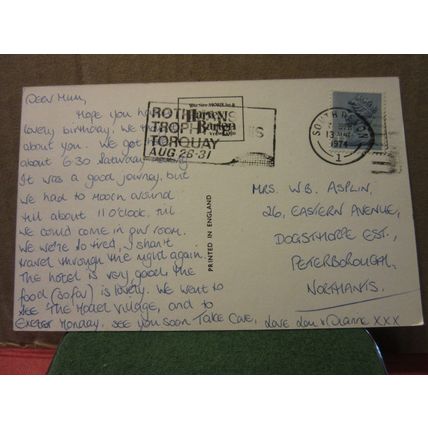 Dear Mum,
Hope you had a
lovely birthday. We
about you. We got
about 6.30 Saturday
It was a good journey, but
we had to around
till about 11 O'clock, till
we could come in our room.
We we're so tired, I shan't
travel through the night again.
The hotel is very good, the
food (so far) is lovely. We went to
see The Model Village, and to
Exeter Monday. See you soon Take Care, Love Lou & Dianne XXX
ROTHMANS
TROPHY TENNIS
TORQUAY
AUG 26-31
SOUTH DEVON
1974
1
PRINTED IN ENGLAND
MRS. W.B. ASPLIN,
26, EASTERN AVENUE,
DOGSTHORPE EST.,
PETERBOROUGH,
NORTHANTS.